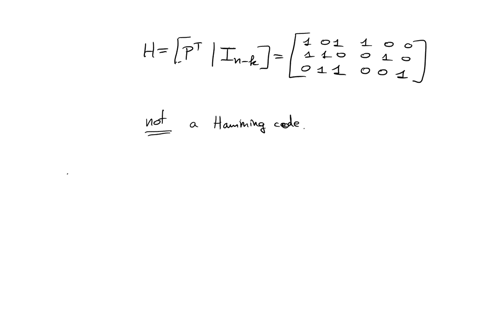 H = [P^T | I_{n-k}] = [1 0 1 1 0 0
1 1 0 0 1 0
0 1 1 0 0 1]
not a Hamming code.